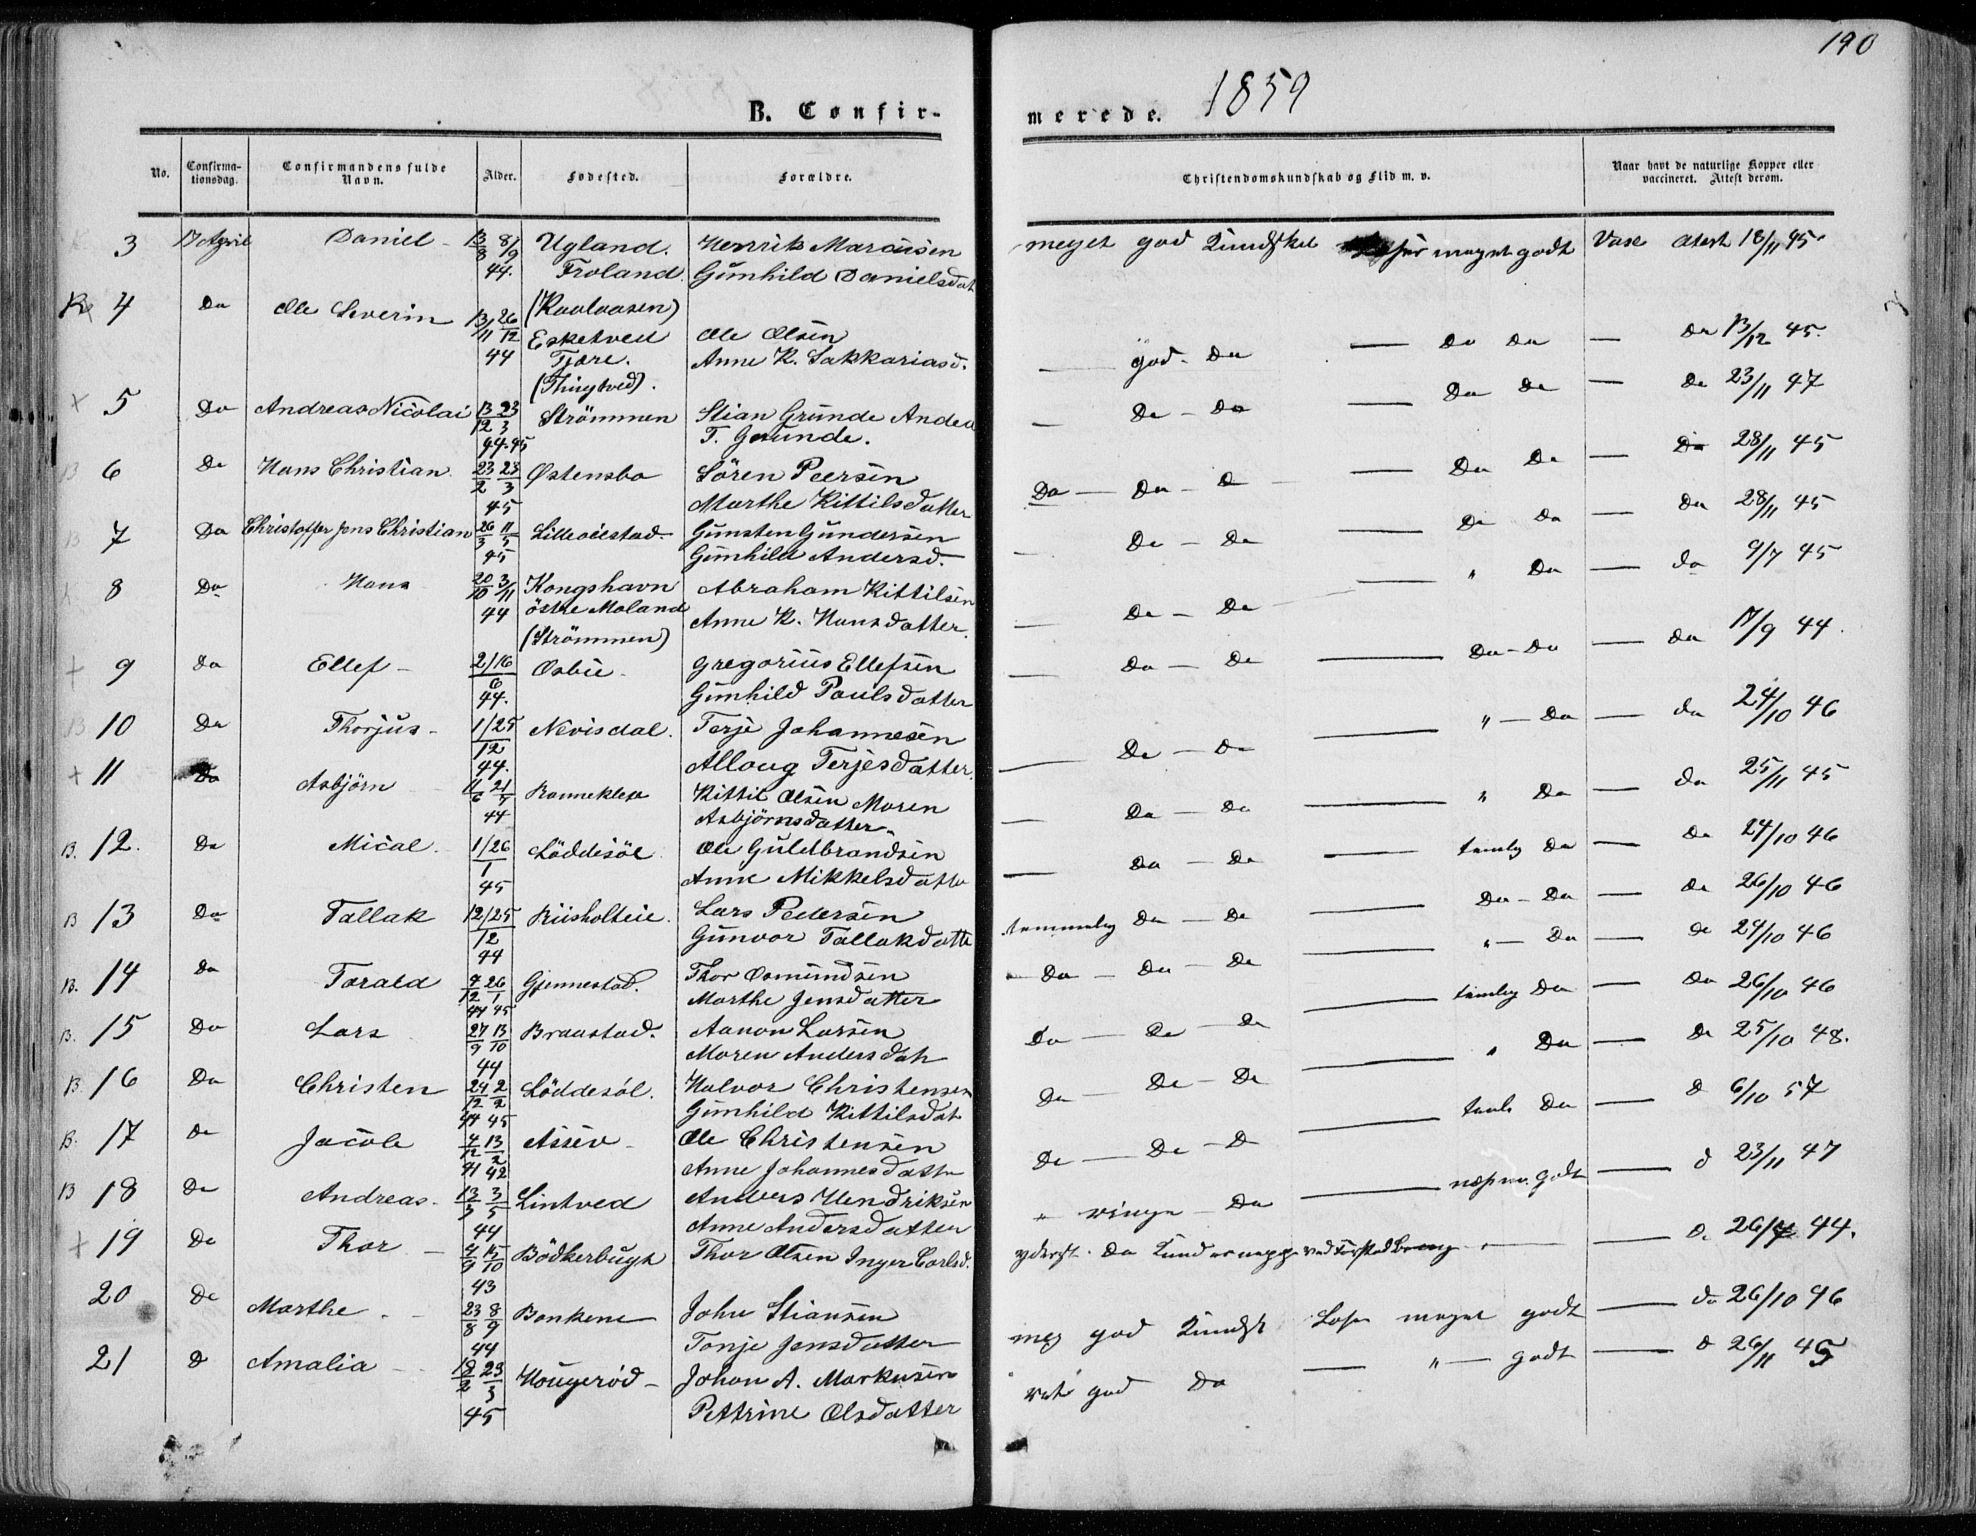 190
1859
B. Confir-
merede.
No.
Confirma-
tionsdag.
Confirmandens fulde
Navn.
Alder.
Fødested.
Forældre.
Christendomskundskab og Flid m. v.
Naar havt de naturlige Kopper eller
vaccineret. Attest derom.
3 17 April Daniel 13/8 8/9 Ugland. Henrik Marcusen meget god Kundskab meget godt Vace Atest 18/11 45.
44. Froland. Gunhild Danielsdat
4 Do Ole Severin 13/11 26/12 (Kaalaasen)
Esketved Ole Olsen god. Do Do Do Do 13/12 45.
44 Tjøre. Anne K. Sakkariasd.
(Thingtved).
5 Do Andreas Nicolai 13/12 23/3 Strömmen Stian Grunde Do Do Do Do Do 23/11 47
44.45 T. Grunde.
6 Do Hans Christian 23/2 23/3 Østensbo Sören Peersen Do Do Do Do Do Do 28/11 45
45 Marthe Kittilsdatter
7 Do Christoffer Jens Christian 26/3 11/5 Gunsten Gundersen Do Do Do Do Do 28/11 45
45 Gunhild Andersd.
8 Do Hans 20/10 3/11 Kongshavn Abraham Kittilsen Do Do " Do Do 9/7 45
44 östre Moland Anne K. Hansdatter.
(Strömmen)
9 Do Ellef 2/16 Osbue Gregorius Ellefsen Do Do Do Do Do 17/9 44.
6
44. Gunhild Paulsdatter
10 Do Thorjus 1/25 Nevisdal. Terje Johannesen Do Do " Do Do 24/10 46
12
44. Alloug Terjesdatter.
11 Do Asbjörn 11/6 21/7 Ranneklev Kittil Olsen Maren Do Do " Do Do 25/11 45
44 Asbjörnsdatter
12. Do Mical 1/26 Löddesöl Ole Guldbrandsen Do Do temlig Do Do 24/10 46
1
45 Anne Mikkelsdatte
13 Do Tallak 12/25 Riisholteie. Lars Pedersen temmelig Do Do Do Do Do 26/10 46
12
44 Gunvor Tallakdatte
14 Do Torald 7/12 26/1 Gjennestad. Thor Osmundsen Do Do Do " Do Do 24/10 46
44 45 Marthe Jensdatter
15 Do Lars 27/9 13/10 Braastad. Aanon Larsen Do Do Do temlig Do Do 26/10 46
44 Maren Andersdatr
16 Do Christen 24/12 2/2 Löddesöl. Halvor Christensen Do Do Do " Do Do 25/10 48.
44 45 Gunhild Kittilsdat
17 Do Jacob 7/12 13/2 Assev Ole Christensen Do Do D Do d 6/10 57
41 42 Anne Johannesdatte
18 Do Andreas 13/3 3/5 Lintved Anders Hendriksen " ringe Do godt d 23/11 47
44 Anne Andersdatter
19 Do Thor 4/9 15/10 Bödkerbugt Thor Olsen Inger Carlsd. yderst Do Do 26/7 44.
43
20 Do Marthe 23/8 8/9 Bankene John Stiansen meg god Kundsk Læser meget godt do 26/10 46
44 Tonje Jensdatter
21 D Amalia 18/2 23/3 Hougeröd Johan A. Markusen god Do " godt d 26/11 45
45 Pettrine Olsdatter